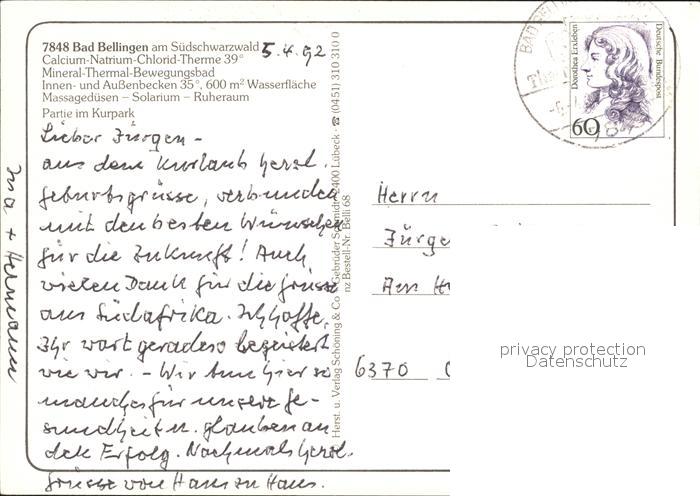 7848 Bad Bellingen am Südschwarzwald 5.4.92
Calcium-Natrium-Chlorid-Therme 39°
Mineral-Thermal-Bewegungsbad
Innen- und Außenbecken 35°, 600 m² Wasserfläche
Massagedüsen – Solarium – Ruheraum
Partie im Kurpark
Lieber Jürgen –
aus dem Kurlaub herzl.
Geburtsgrüsse, verbunden
mit den besten Wünschen
für die Zukunft! Auch
vielen Dank für die Grüsse
aus Südafrika. Ich hoffe,
Ihr wart geradeso begeistert
wie wir. – Wir tun hier so
manches für unsere Ge-
sundheit u. glauben an
den Erfolg. Nochmals herzl.
Grüsse von Haus zu Haus.
Ina + Hermann
Herst. u. Verlag Schöning & Co + Gebrüder Schmidt, 2400 Lübeck · ☎ (0451) 310 310 0
nz Bestell-Nr. Belli 68
Dorothea Erxleben
Deutsche Bundespost
60
BAD BELLINGEN
Herrn
Jürge
Am
6370
privacy protection
Datenschutz